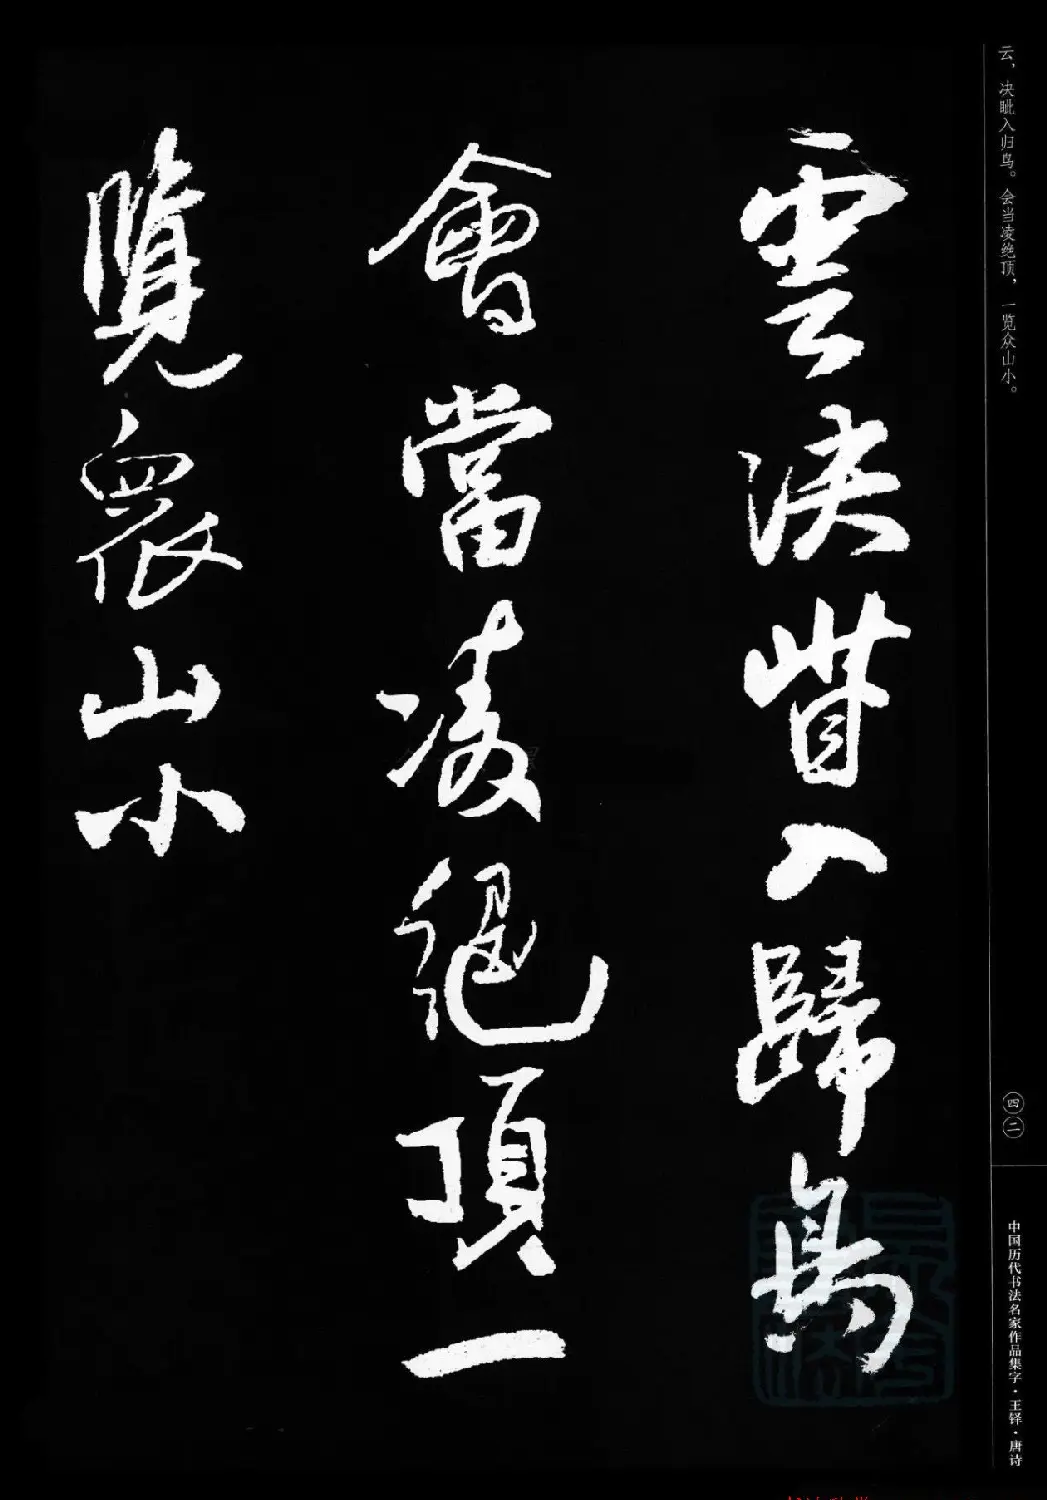 云，决眦入归鸟。会当凌绝顶，一览众山小。
雲決眥入歸鳥
會當凌絕頂一
覽衆山小
四二
中国历代书法名家作品集字·王铎·唐诗